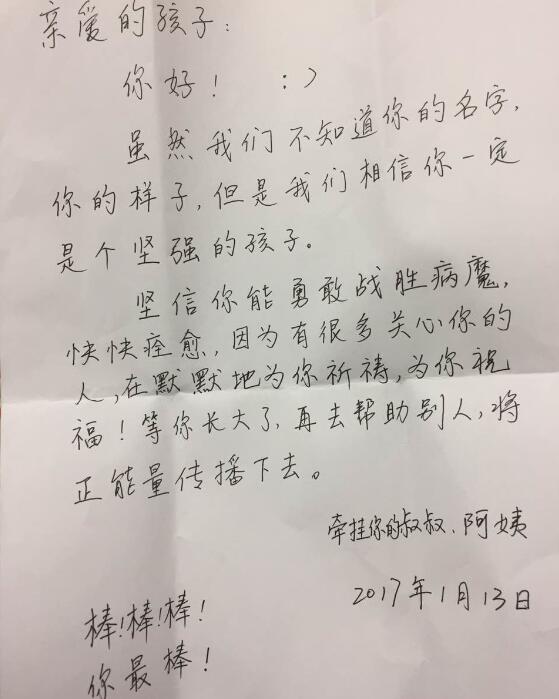 亲爱的孩子:
你好! :)
虽然我们不知道你的名字,
你的样子,但是我们相信你一定
是个坚强的孩子。
坚信你能勇敢战胜病魔,
快快痊愈,因为有很多关心你的
人,在默默地为你祈祷,为你祝
福!等你长大了,再去帮助别人,将
正能量传播下去。
牵挂你的叔叔、阿姨
2017年1月13日
棒!棒!棒!
你最棒!